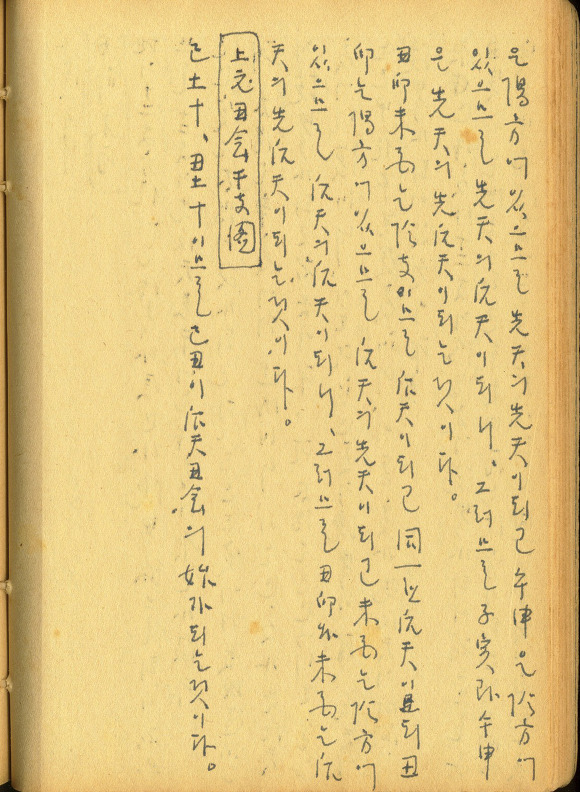 은 陽方에 있으므로 先天의 先天이 되고 午申은 陰方에
있으므로 先天의 后天이 되니、그러므로 子寅과 午申
은 先天의 先后天이 되는 것이다。
丑卯未酉는 陰支이므로 后天이 되고 同一한 后天이로되 丑
卯는 陽方에 있으므로 后天의 先天이 되고 未酉는 陰方에
있으므로 后天의 后天이 되니、그러므로 丑卯와 未酉는 后
天의 先后天이 되는 것이다。
上元丑会干支圖
己土十、丑土十이므로 己丑이 后天丑会의 始가 되는 것이다。